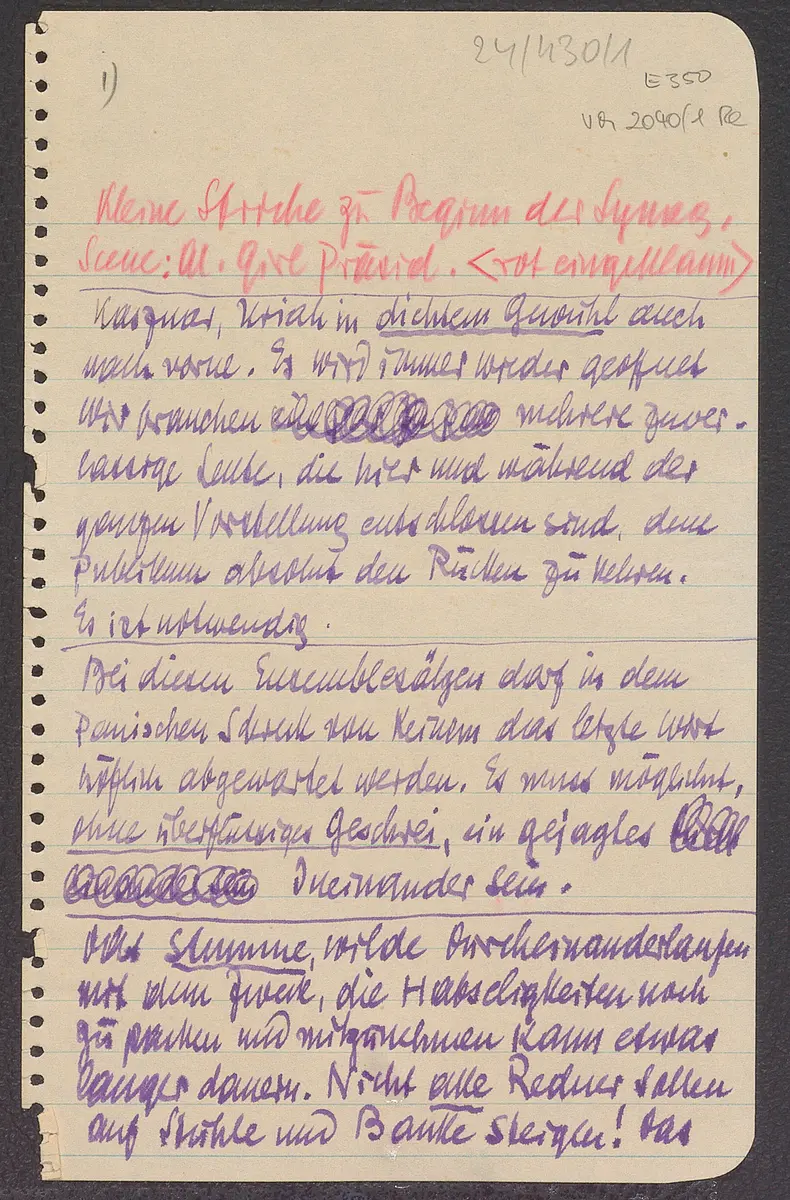 24/430/1
1)
E350
2090/1
Kleine Striche zu Beginn der Synag.
Scene: Al. Girl Präsid. <rot eingeklamm>
Kaspnar, Uriah in dichtem Gewühl auch
nach vorne. Es wird immer wieder geöffnet
wir brauchen mehrere zuver-
lässige Leute, die hier und während der
ganzen Vorstellung entschlossen sind, dem
Publikum absolut den Rücken zu kehren.
Es ist notwendig.
Bei diesen Ensemblesätzen darf in dem
panischen Schreck von Keinem das letzte Wort
höflich abgewartet werden. Es muss möglichst,
ohne überflüssiges Geschrei, ein gejagtes
Ineinander sein.
Das stumme, wilde Durcheinanderlaufen
mit dem Zweck, die Habseligkeiten noch
zu packen und mitzunehmen kann etwas
länger dauern. Nicht alle Redner sollen
auf Stühle und Bänke steigen! Das